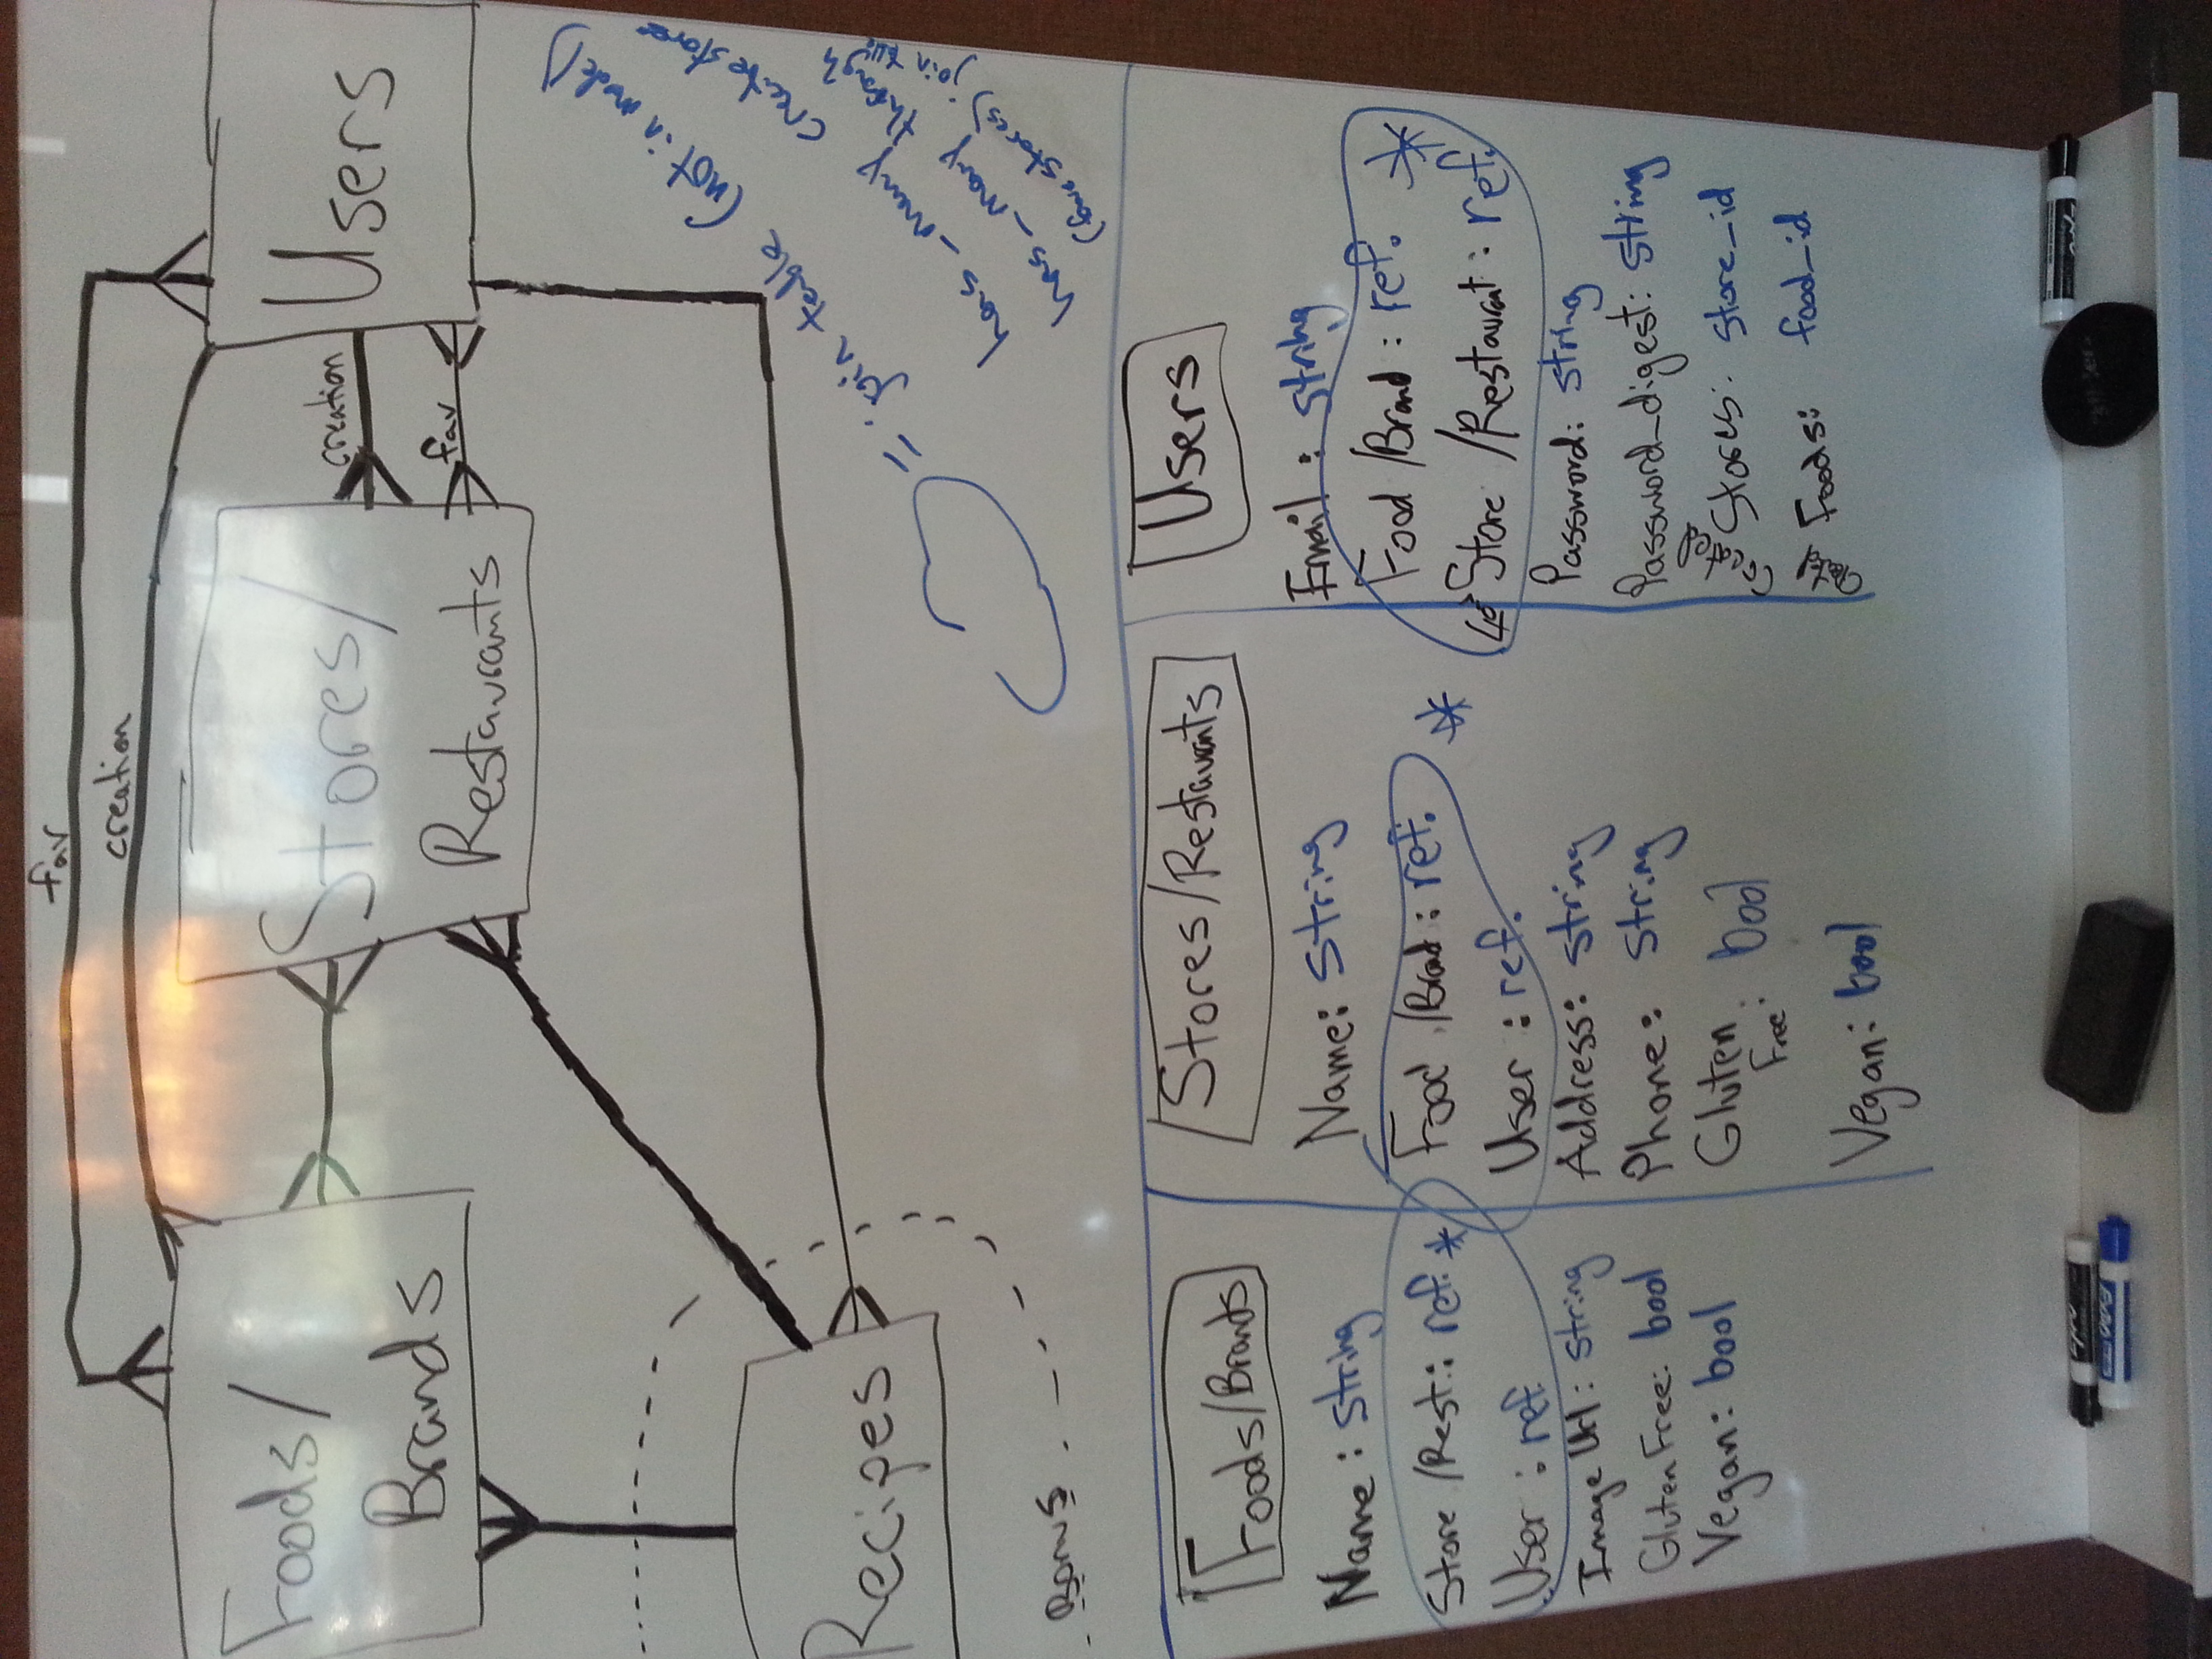 fav
creation
Foods/
Brands
Stores/
Restaurants
creation
fav
Users
Recipes
Bonus
= join table (not in model)
has_many create stores
has_many through
(fave stores) join
Foods/Brands
Name : string
Store /Rest: ref. *
User : ref.
Image Url: string
Gluten Free: bool
Vegan: bool
Stores/Restaurants
Name: string
Food /Brand : ref. *
User : ref.
Address: string
Phone: string
Gluten
Free: bool
Vegan: bool
Users
Email : string
Food /Brand : ref. *
Store /Restaurant : ref.
Password: string
Password_digest: string
Created Stores: store_id
Created Foods: food_id
EXPO